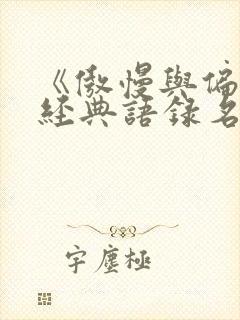 《傲慢與偏
經典語錄名
字塵極